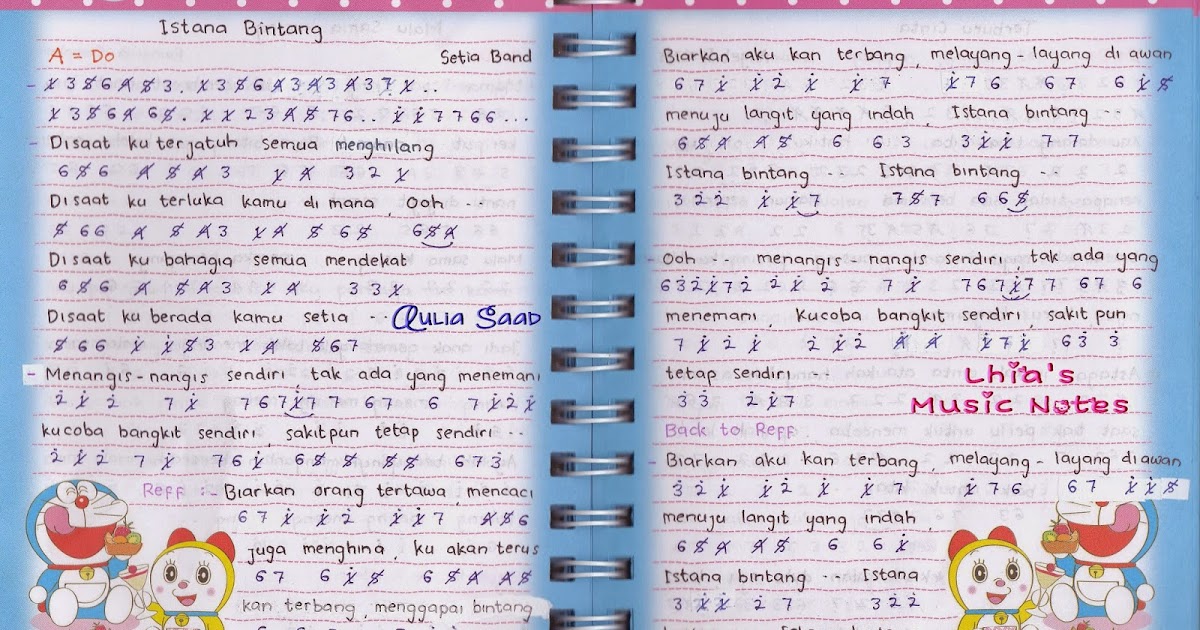 Istana Bintang
A = Do Setia Band
- 1 3 5 6 4 5 3 . 1 3 5 6 4 3 4 3 4 3 7 1 . .
1 3 5 6 4 6 5 . 1 1 2 3 4 5 7 6 . . 1 1 7 7 6 6 . . .
- Disaat ku terjatuh semua menghilang
6 5 6 4 5 4 3 1 4 3 2 1
Disaat ku terluka kamu di mana, Ooh ...
5 6 6 4 5 4 3 1 4 5 6 5 6 5 4
Disaat ku bahagia semua mendekat
6 5 6 4 5 4 3 1 4 3 3 1
Disaat ku berada kamu setia ...
5 6 6 1 1 5 3 1 4 5 6 7
Aulia Saad
- Menangis-nangis sendiri, tak ada yang menemani
2 1 2 7 1 7 6 7 1 7 7 6 7 6 7 1 2 1
kucoba bangkit sendiri, sakit pun tetap sendiri ...
2 1 2 7 1 7 6 1 6 5 5 5 5 6 7 3
Reff :- Biarkan orang tertawa, mencaci
6 7 1 1 2 1 1 7 4 5 6
juga menghina, ku akan terus
6 7 6 1 5 6 5 4 4 5
kan terbang, menggapai bintang
Biarkan aku kan terbang, melayang-layang di awan
6 7 1 1 2 1 1 7 1 7 6 6 7 6 1 5
menuju langit yang indah, Istana bintang
6 5 4 4 5 6 6 3 3 1 1 7 7
Istana bintang ... Istana bintang ..
3 2 2 1 1 7 7 5 7 6 6 5
- Ooh ... menangis-nangis sendiri, tak ada yang
6 3 2 1 7 2 2 1 2 7 1 7 6 7 1 7 7 6 7 6
menemani, kucoba bangkit sendiri, sakit pun
7 1 2 1 2 1 2 4 4 1 7 1 6 3 3
tetap sendiri ...
3 3 2 1 7
Lhia's
Music Notes
Back to Reff
- Biarkan aku kan terbang, melayang-layang di awan
3 2 1 1 2 1 1 7 1 7 6 6 7 1 1 5
menuju langit yang indah,
6 5 4 4 5 6 6 1
Istana bintang ... Istana
3 1 1 2 7 3 2 2